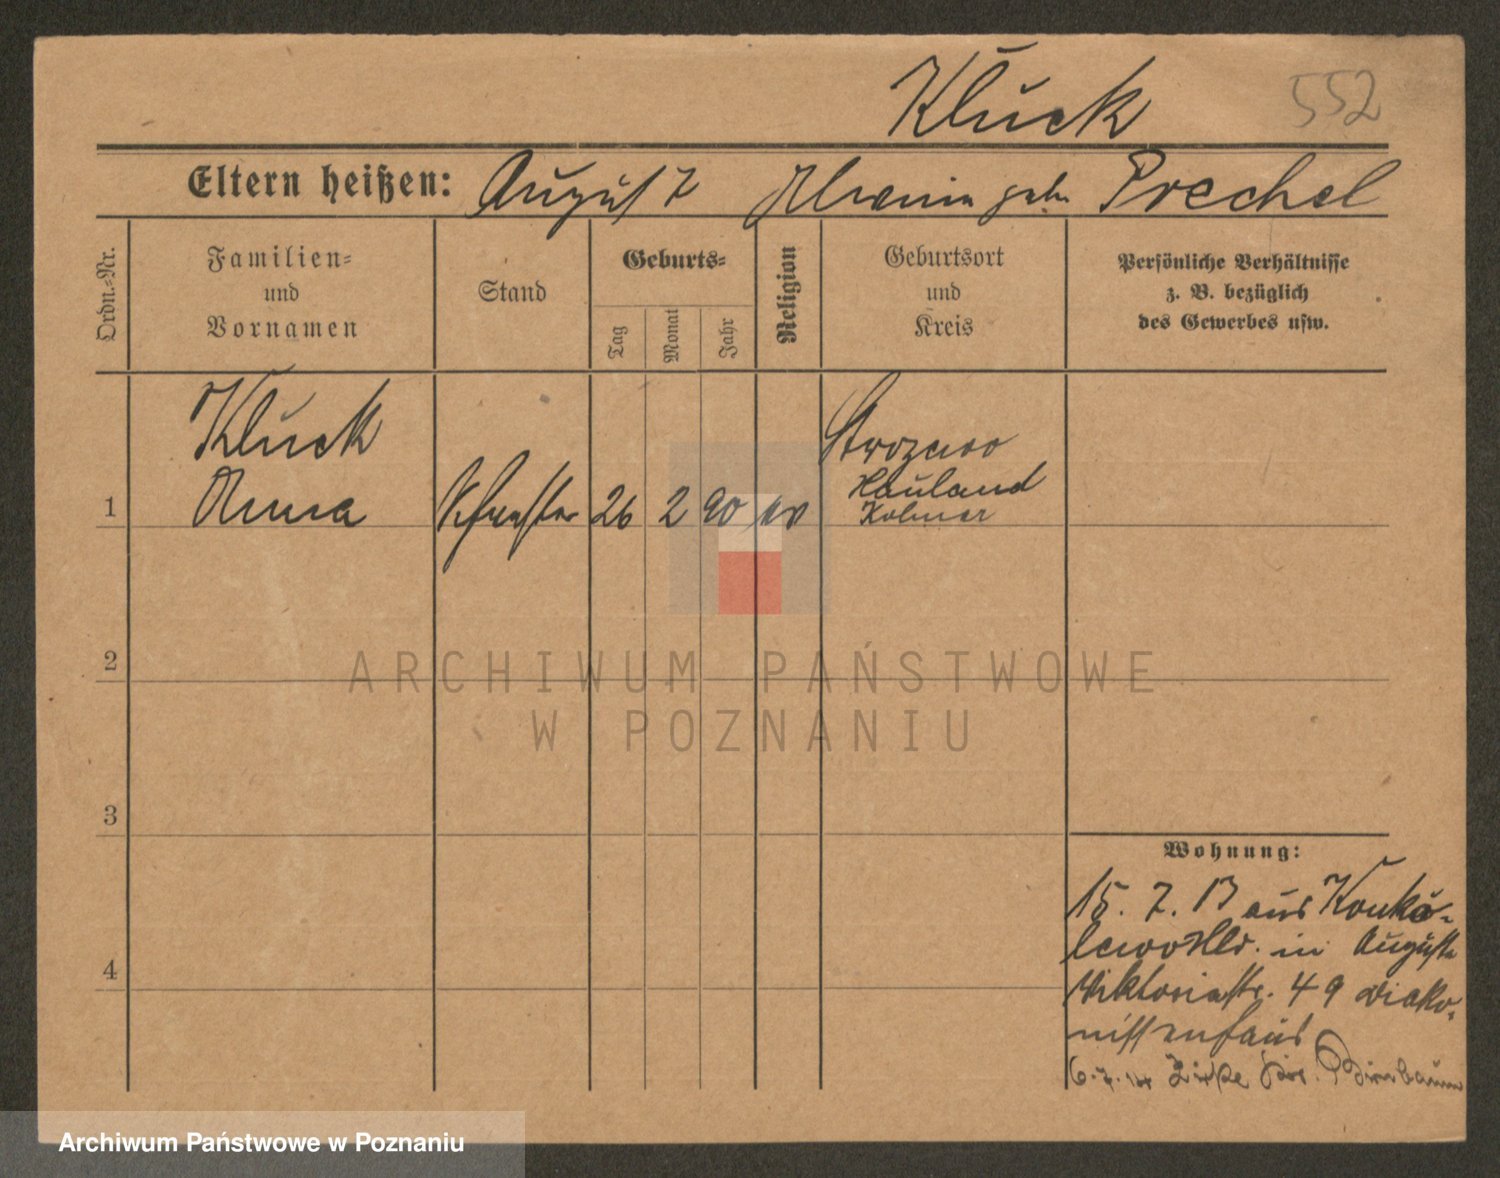 Kluck 552
Eltern heißen: August Alwanin geb. Prechel
Ordn.-Nr.
Familien-
und
Vornamen
Stand
Geburts-
Tag
Monat
Jahr
Religion
Geburtsort
und
Kreis
Persönliche Verhältnisse
z. B. bezüglich
des Gewerbes usw.
Kluck
Anna
1
Schwester
26 2 90 ev
Strozewo
Hauland
Kolmar
2
3
4
Wohnung:
15. 7. 13 aus Konko-
lewo Hld. in Auguste
Viktoriastr. 49 Diako-
nissenhaus
6.7.14 Zirke Krs. Birnbaum
ARCHIWUM PAŃSTWOWE
W POZNANIU
Archiwum Państwowe w Poznaniu